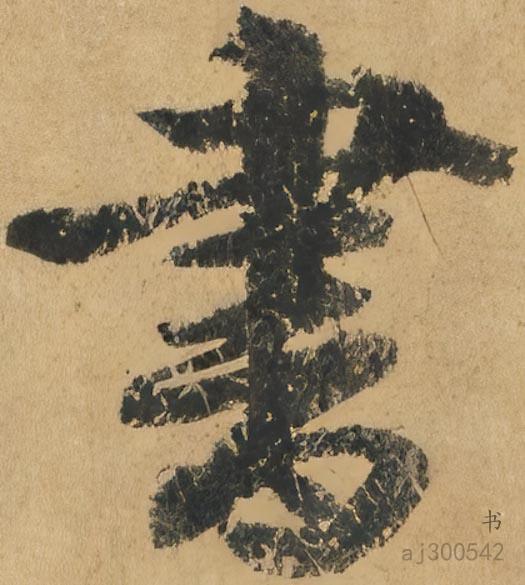 書
书
aj300542